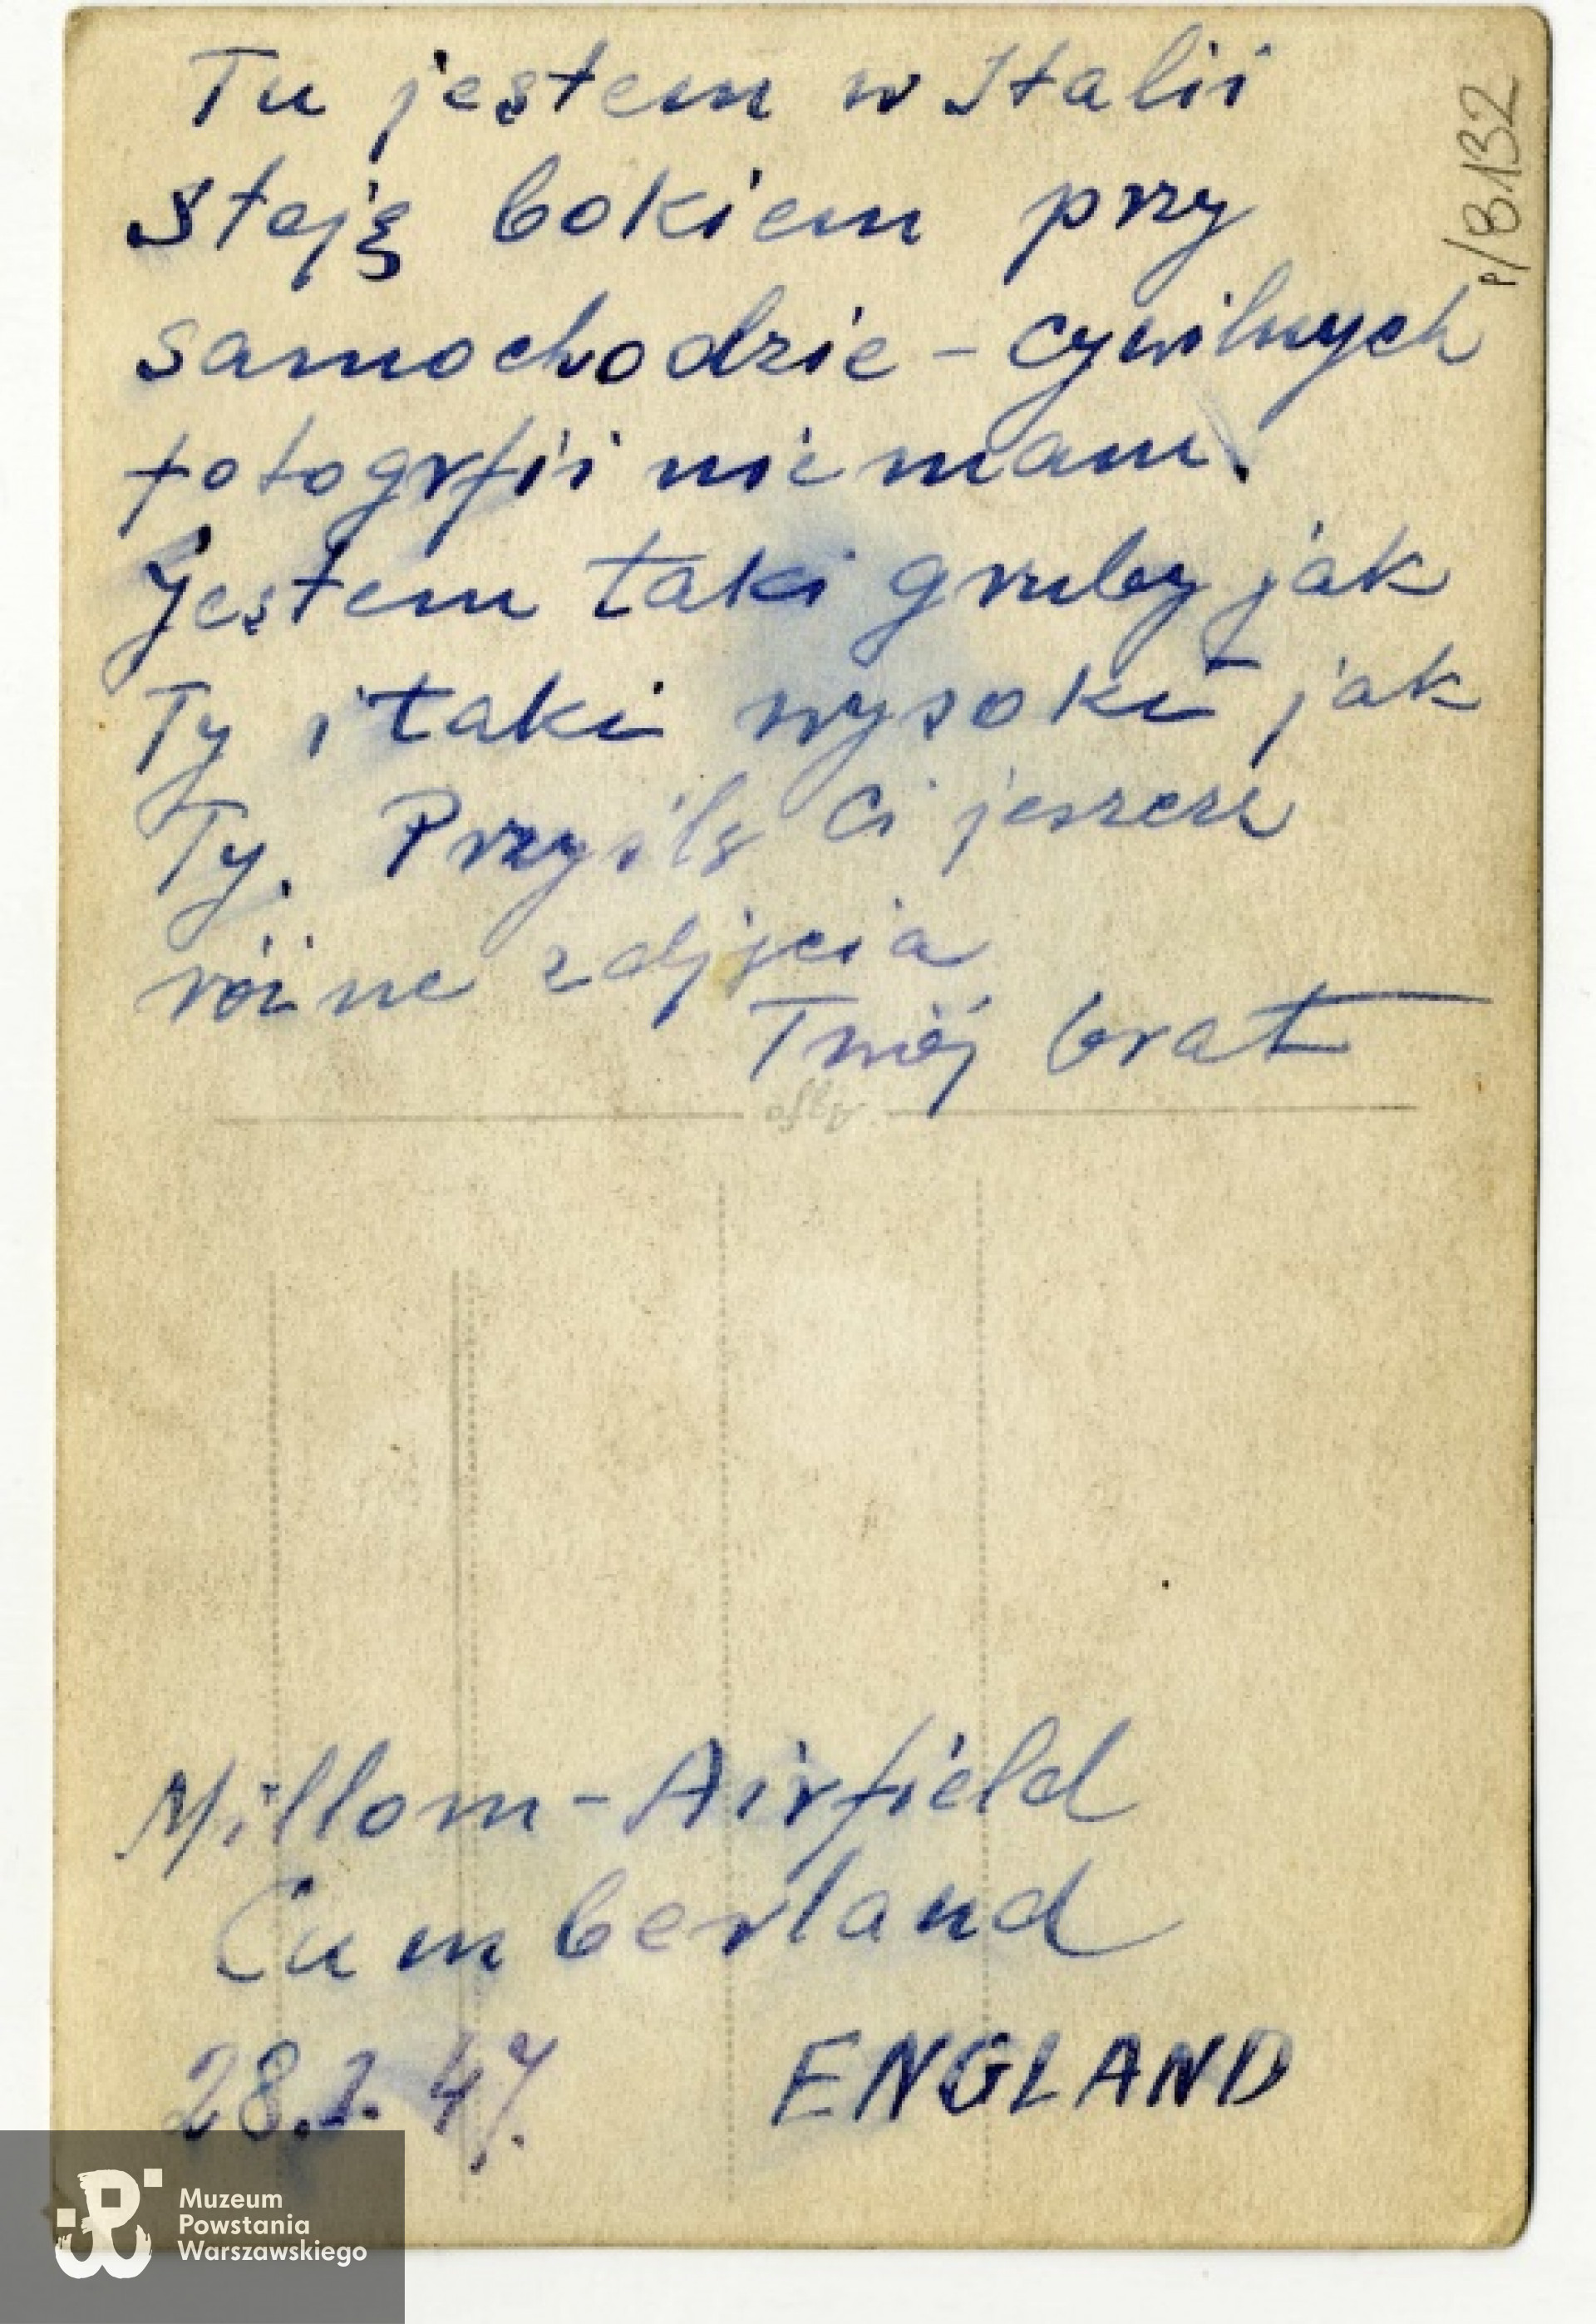 Tu jestem w Italii
Stoję bokiem przy
samochodzie – cywilnych
fotogrfii nie mam.
Jestem taki gruby jak
Ty i taki wysoki jak
Ty. Przyślę Ci jeszcze
różne zdjęcia
Twój brat
Agfa
Millom – Airfield
Cumberland
28.1.47.
ENGLAND
P/8132
Muzeum
Powstania
Warszawskiego